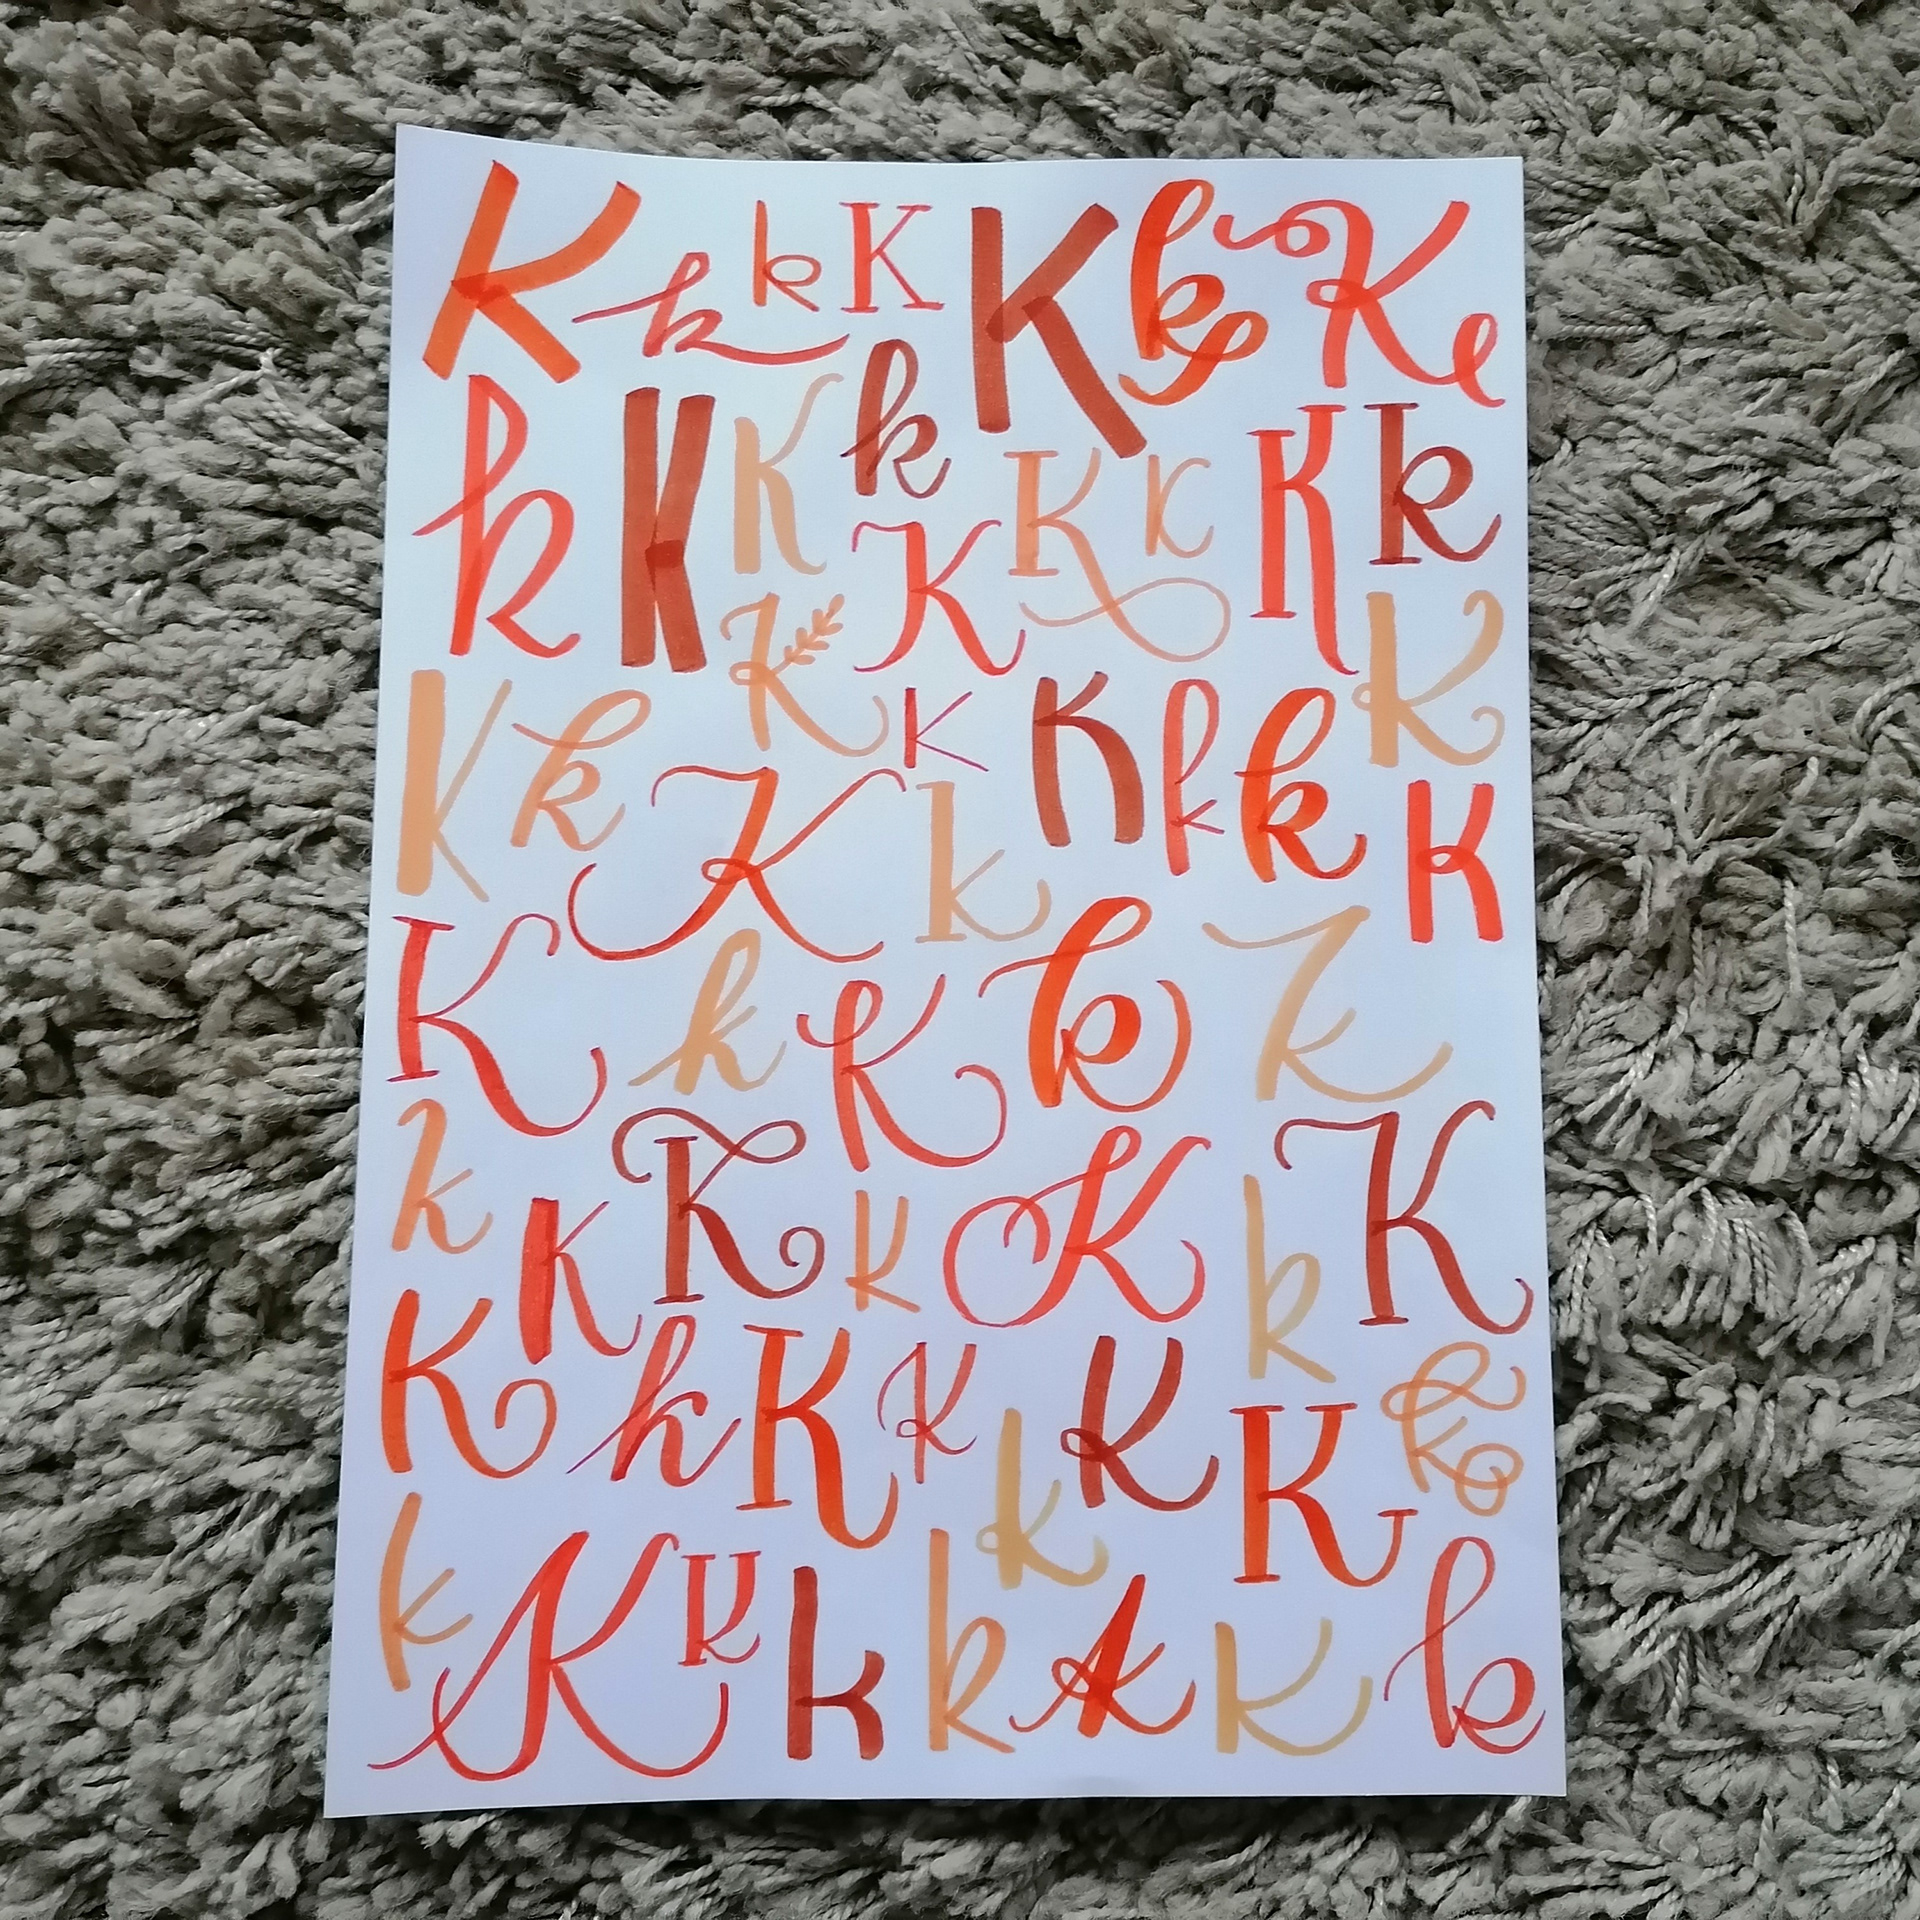 K k k K K k K
k K K k K K K K k
K k K K K K k k K
K k K k K
K k K k K
k K K K K k K
K k K K k K K k
k K K k k k K k